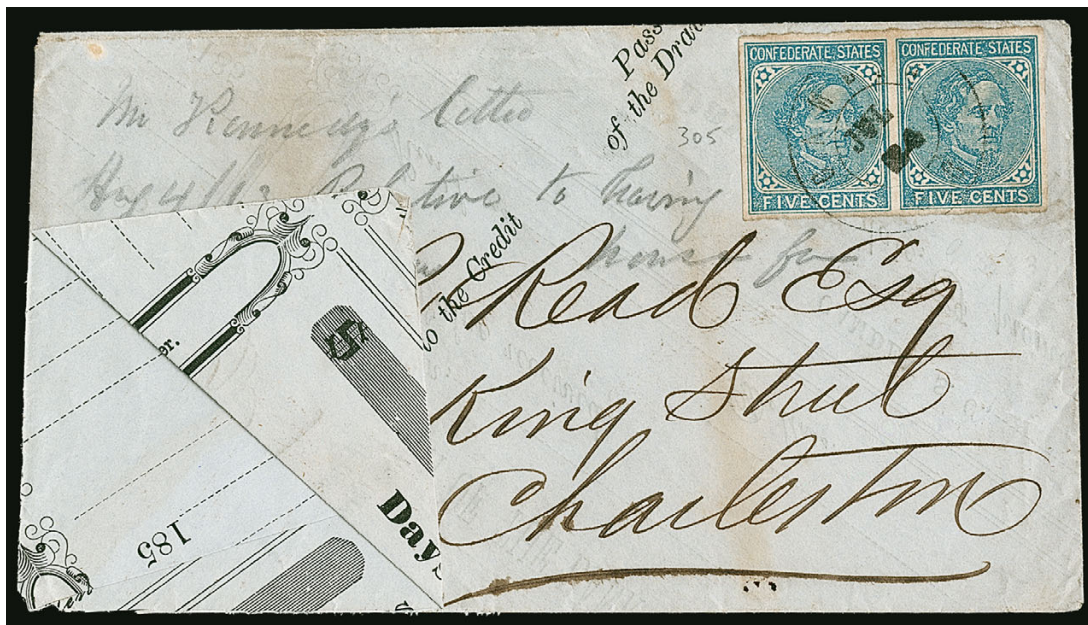 Pass
of the Draw
CONFEDERATE STATES
FIVE CENTS
CONFEDERATE STATES
FIVE CENTS
JUL
24
305
Mr Kennedy's letter
Relative to having
house for
to the Credit
Read Esq
King Street
Charleston
er.
185
Days